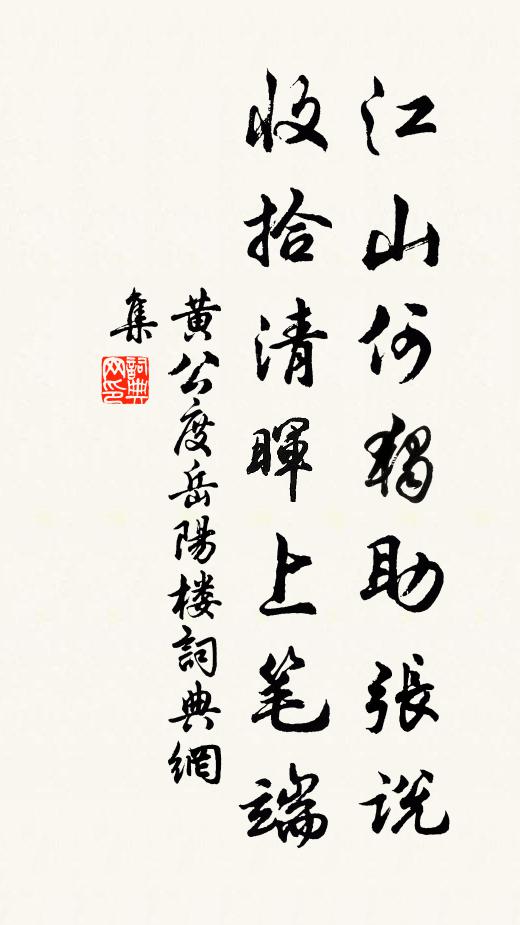 江山何獨助張說
收拾清暉上笔端
黄公度岳陽楼詞典網
集
詞典
网印